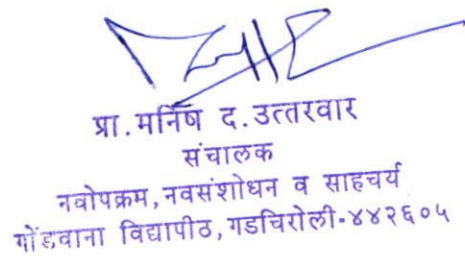 प्रा.मनिष द.उत्तरवार
संचालक
नवोपक्रम,नवसंशोधन व साहचर्य
गोंडवाना विद्यापीठ,गडचिरोली-४४२६०५